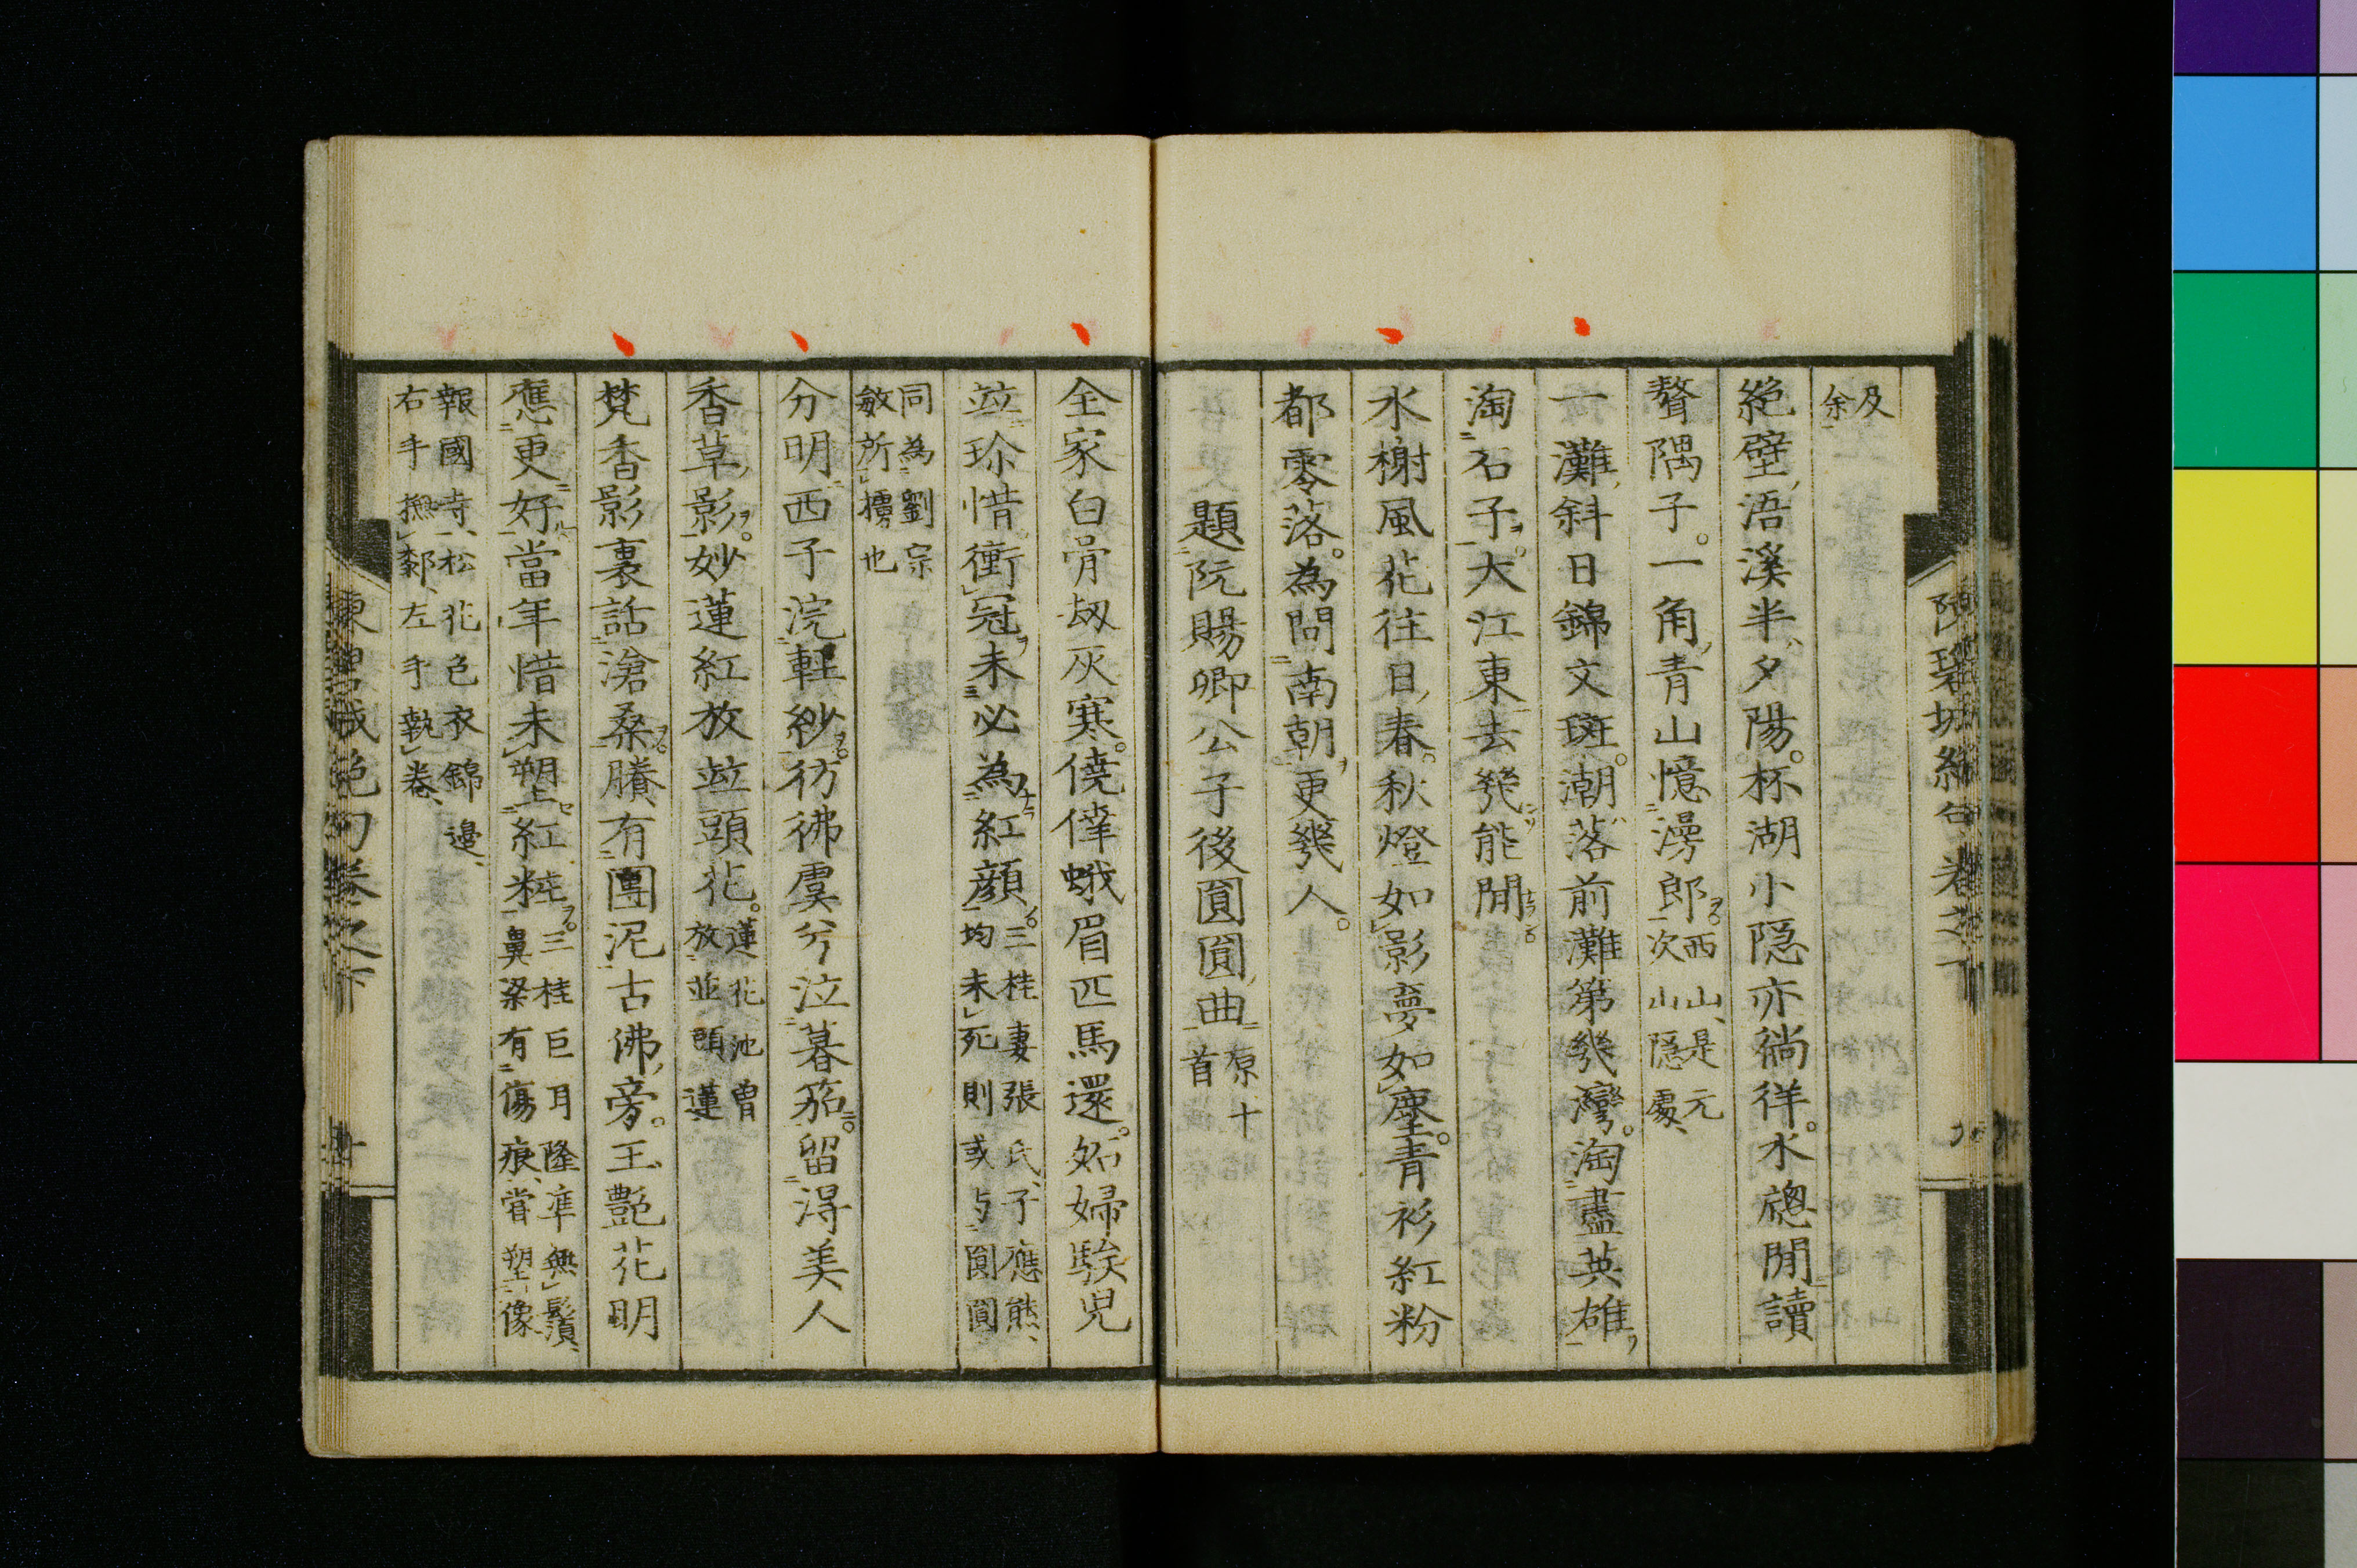 及
余
絶壁浯溪半夕陽。杯湖小隠亦徜徉。水窓閒讀
聱隅子。一角青山憶漫郎。西山是元
次山隠處、
一灘斜日錦文斑。潮落前灘第幾灣。淘盡英雄
淘石子。大江東去幾能閒
水榭風花往日春。秋燈如影夢如塵。青衫紅粉
都零落。為問南朝更幾人。
題阮賜卿公子後圓圓曲原十
首
全家白骨刼灰寒。僥倖蛾眉匹馬還。妬婦騃児
竝珎惜。衝冠未必為紅顔。三桂妻張氏、子應熊、
均未死則或与圓圓
同為劉宗
敏所擄也
分明西子浣軽紗。彷彿虞兮泣暮笳。留得美人
香草影。妙蓮紅放竝頭花。蓮花池曽
放並頭蓮
梵香影裏話滄桑。賸有團泥古佛旁。玉艶花明
應更好當年惜未塑紅粧。三桂巨耳隆準無鬚、
鼻梁有傷痕、嘗塑像
報國寺、松花色衣錦邉、
右手撫膝、左手執巻、